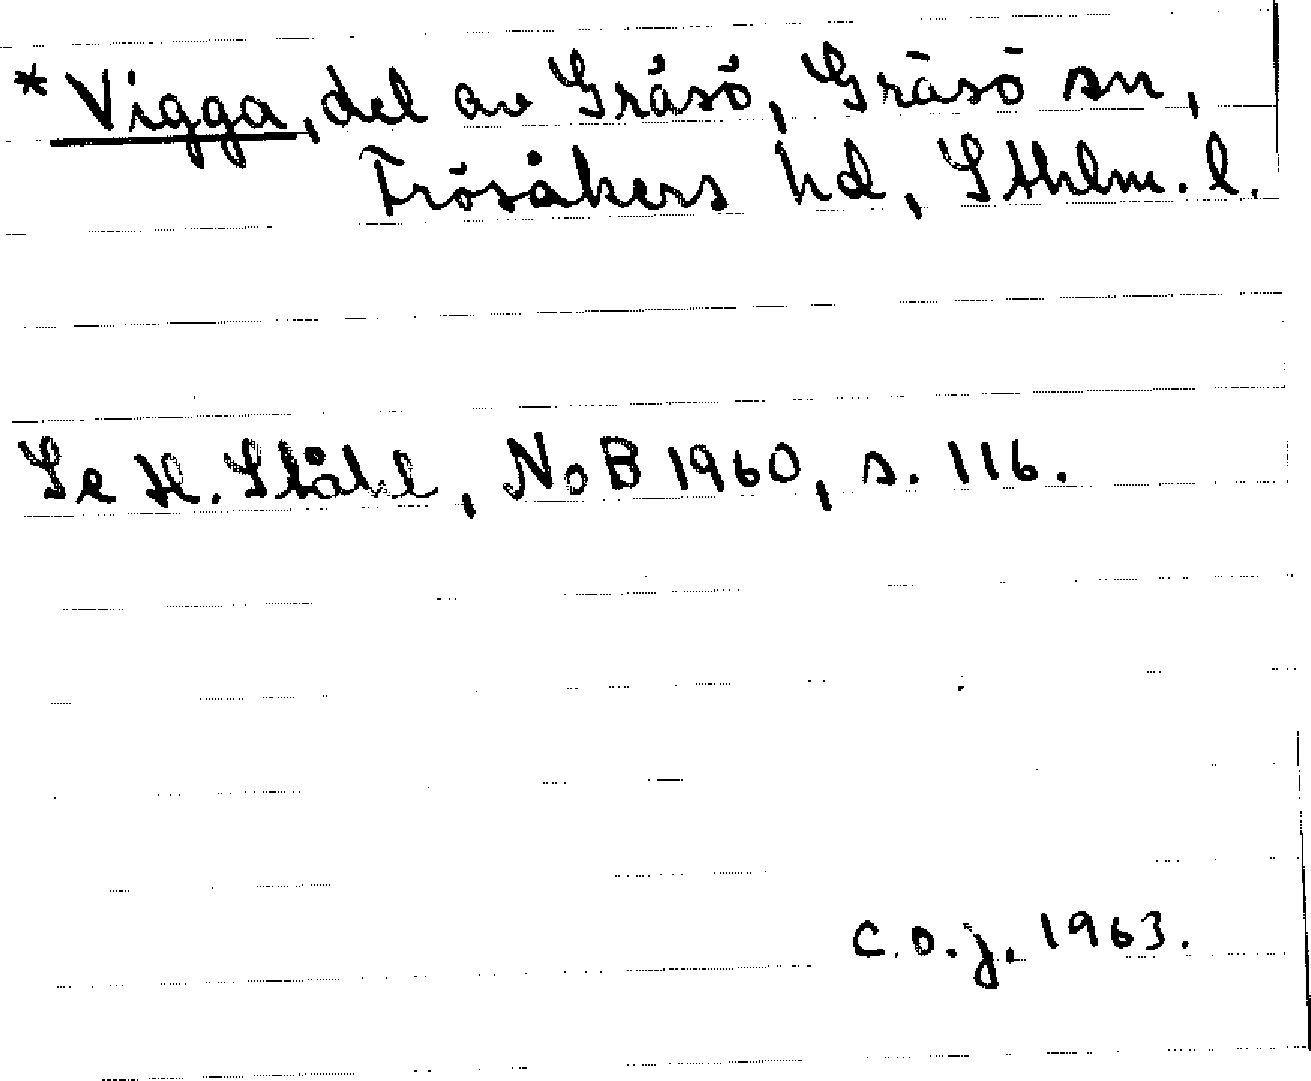 * Vigga, del av Gräsö, Gräsö sn,
Frösåkers hd, Sthlm. l.
Se H. Ståhl, NoB 1960, s. 116.
C.O.J. 1963.